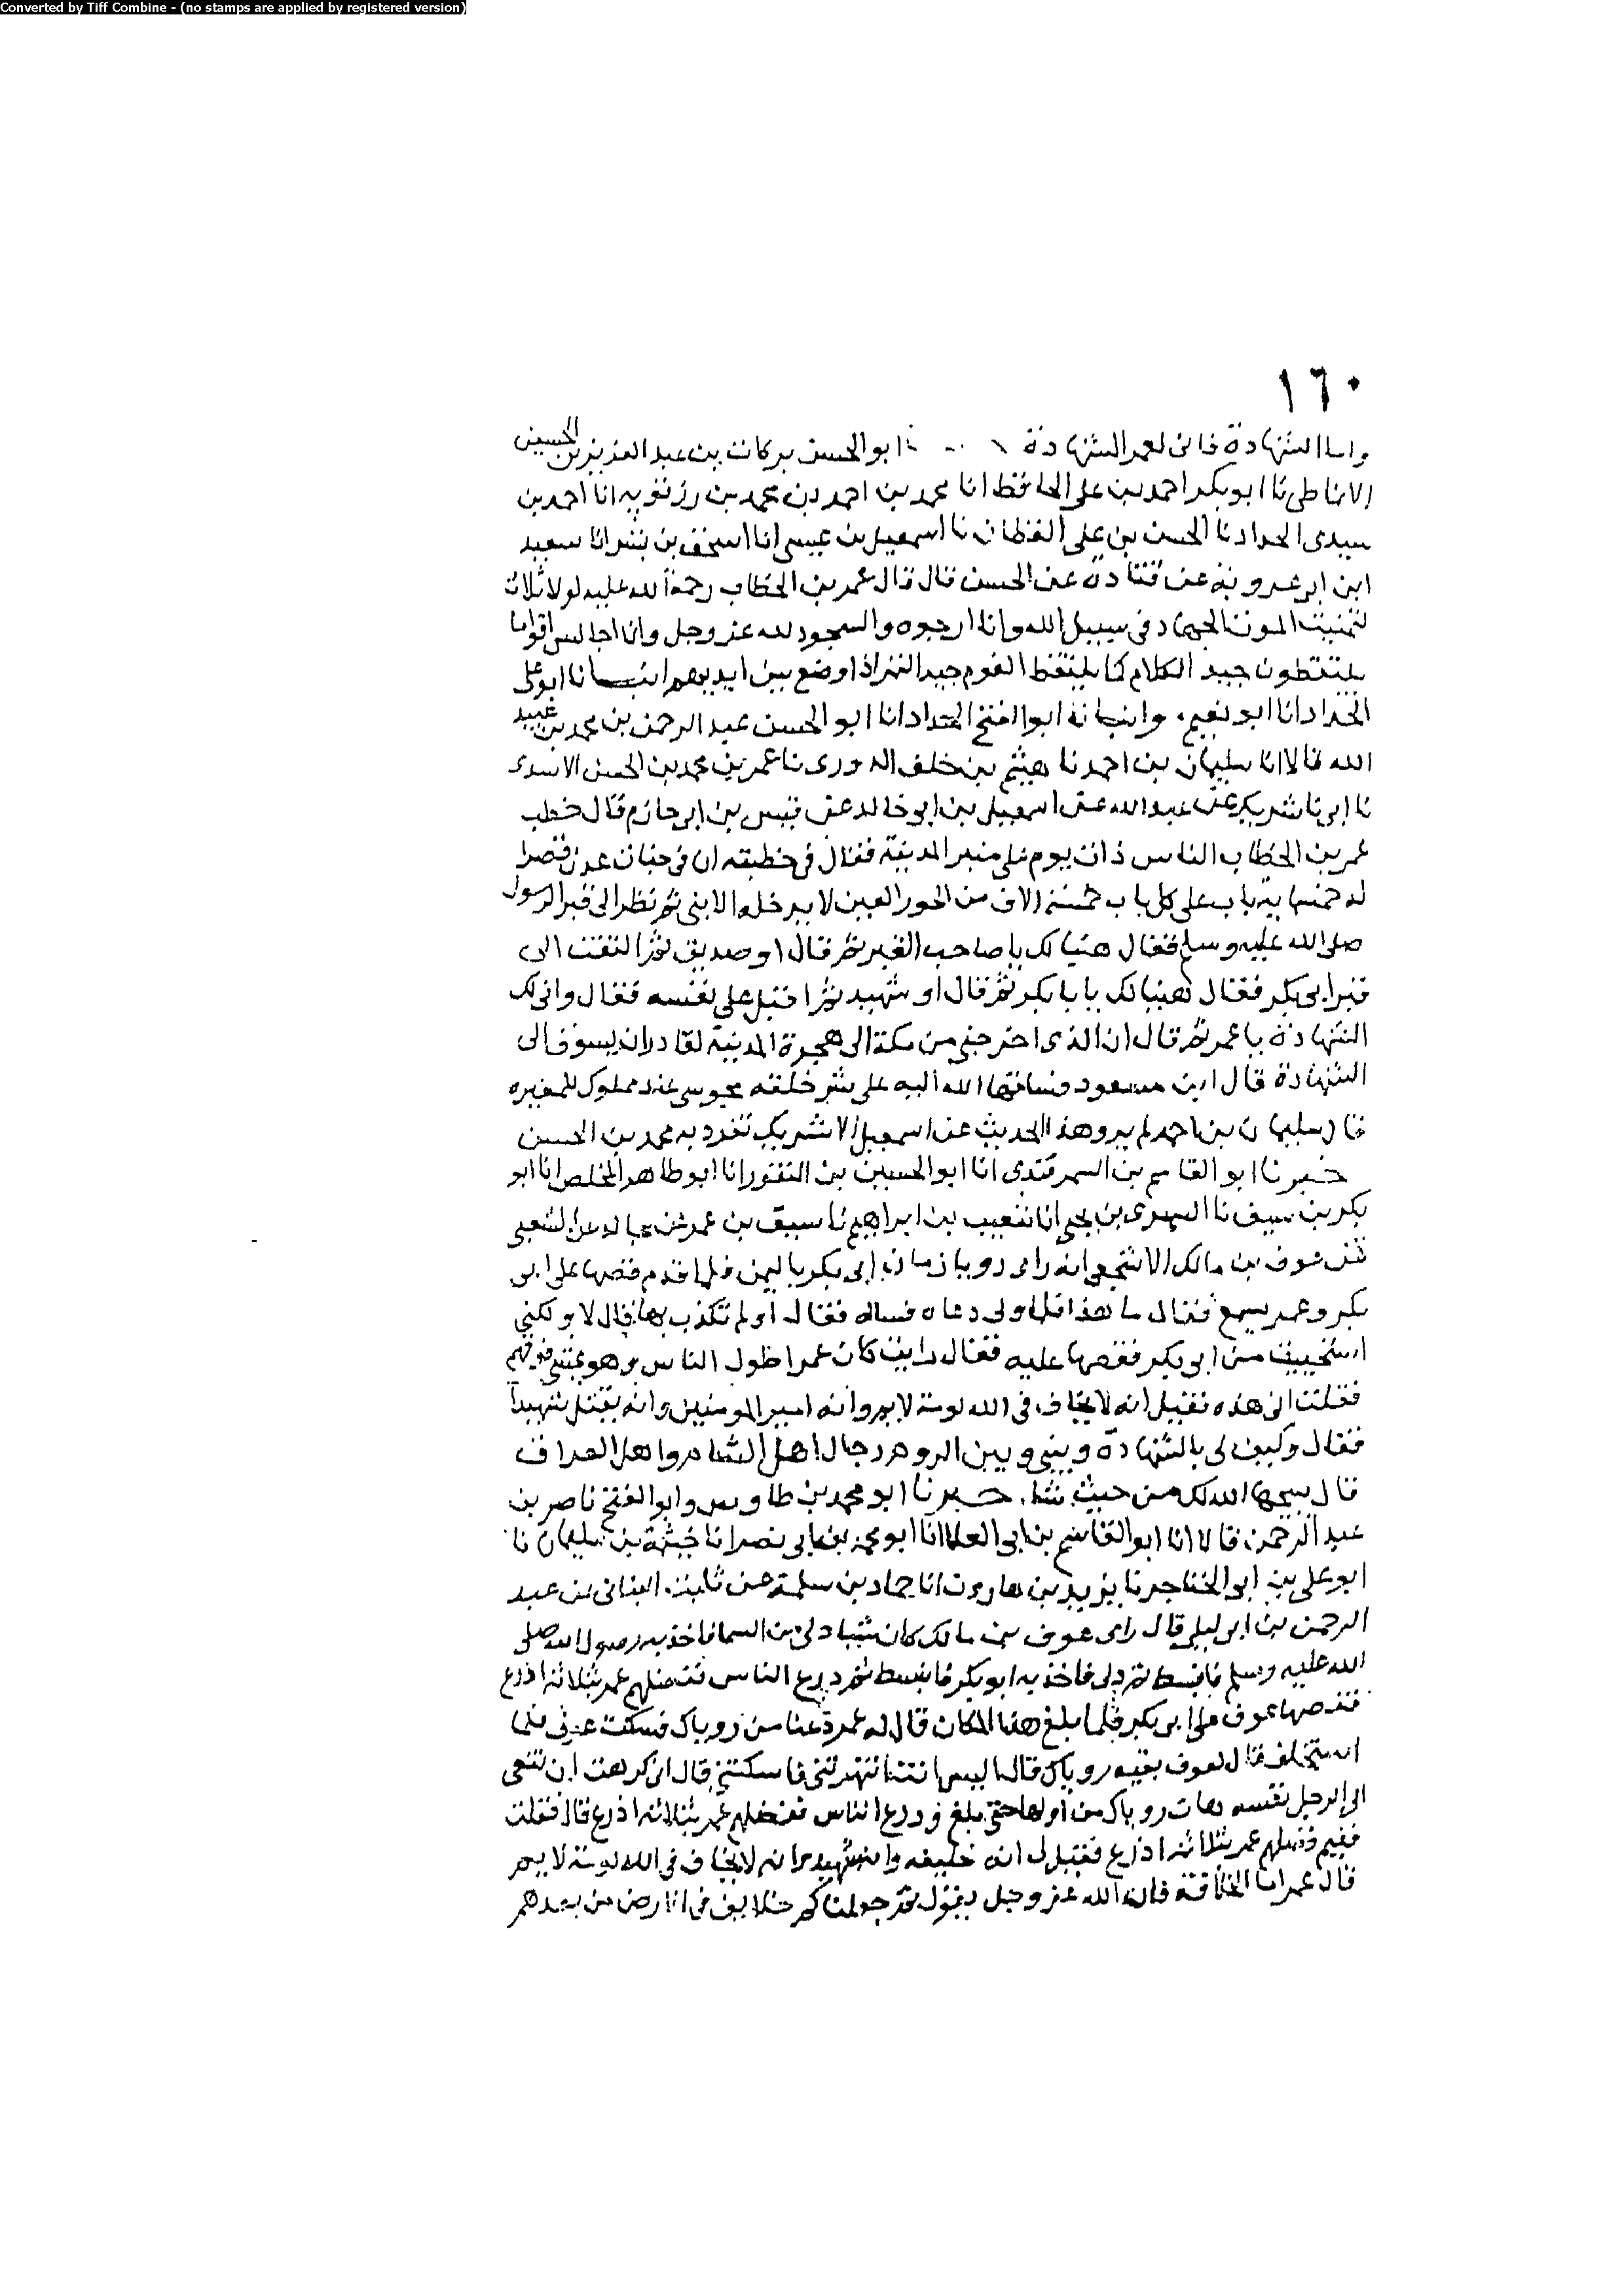 Converted by Tiff Combine - (no stamps are applied by registered version)
١٦٠
واما الشهادة فانى لعمر الشهادة ابو الحسن بركات بن عبد العزيز بن الحسين
الانماطى نا ابو بكر احمد بن على الحافظ انا محمد بن احمد بن محمد بن رزقويه انا احمد بن
سيدى الحداد نا الحسن بن على القطان نا اسمعيل بن عيسى انا اسحق بن بشر انا سعيد
ابن ابى عروبة عن قتادة عن الحسن قال قال عمر بن الخطاب رحمة الله عليه لولا ثلاث
لتمنيت الموت الجهاد فى سبيل الله وانا ارجوه والسجود لله عز وجل وان اجالس اقواما
يلتقطون جيد الكلام كما يلتقط القوم جيد التمر اذا وضع بين ايديهم انبانا ابو على
الحداد انا ابو نعيم وانبانا ابو الفتح الحداد انا ابو الحسن عبد الرحمن بن محمد بن عبيد
الله قالا انا سليمان بن احمد نا هيثم بن خلف الدورى نا عمر بن محمد بن الحسن الاسدى
نا ابى نا شريك بن عبد الله عن اسمعيل بن ابى خالد عن قيس بن ابى حازم قال خطب
عمر بن الخطاب الناس ذات يوم على منبر المدينة فقال فى خطبته ان فى جنات عدن قصرا
له خمسماية باب على كل باب خمسة الاف من الحور العين لا يدخله الا نبى ثم نظر الى قبر الرسول
صلى الله عليه وسلم فقال هنيا لك يا صاحب القبر ثم قال او صديق ثم التفت الى
قبر ابى بكر فقال هنيا لك يا با بكر ثم قال او شهيد ثم اقبل على نفسه فقال وانى لك
الشهادة يا عمر ثم قال ان الذى اخرجنى من مكة الى هجرة المدينة لقادر ان يسوق الى
الشهادة قال ابن مسعود فساقها الله اليه على شر خلقه مجوسى عبد مملوك للمغيره
قال سليمان بن احمد لم يرو هذا الحديث عن اسمعيل الا شريك تفرد به محمد بن الحسن
خبرنا ابو القاسم بن السمرقندى انا ابو الحسين بن النقور انا ابو طاهر المخلص انا ابو
بكر بن سيف نا السرى بن يحيى انا شعيب بن ابراهيم نا سيف بن عمر عن مجالد عن الشعبى
عن عوف بن مالك الاشجعى انه راى رويا زمان ابى بكر باليمن فلما قدم قصها على ابى
بكر وعمر يسمع فقال ما هذا فلما ولى دعاه فساله فقال او لم تكذب بها قال لا ولكنى
استحييت من ابى بكر فقصها عليه فقال رايت كان عمر اطول الناس وهو يمشى فوقهم
فقلت انى هذه فقيل انه لا يخاف فى الله لومة لايم وانه امير المومنين وانه يقتل شهيدا
فقال وكيف لى بالشهادة وبينى وبين الروم رجال اهل الشام واهل العراق
قال يسبحها الله لك من حيث شا خبرنا ابو محمد بن طاوس وابو الفتح ناصر بن
عبد الرحمن قالا انا ابو القاسم بن ابى العلا انا ابو محمد بن ابى نصر انا خيثمة بن سليمان نا
ابو على بن ابى الخناجر نا يزيد بن هارون انا حماد بن سلمة عن ثابت البنانى بن عبد
الرحمن بن ابى ليلى قال راى عوف بن مالك كان شيا دلى من السما فاخذ به رسول الله صلى
الله عليه وسلم فانبسط ثم دلى فاخذ به ابو بكر فانبسط ثم درع الناس ففضلهم عمر بثلاثة اذرع
فقصها عوف على ابى بكر فلما بلغ هذا المكان قال له عمر دعنا من روياك فسكت عوف فلما
استخلف قال لعوف بقية روياك قال اليس انت انتهرتنى فاسكتنى قال انى كرهت ان تنعى
الى الرجل نفسه هات روياك من اولها حتى بلغ ودرع الناس ففضلهم عمر بثلاثة اذرع قال فقلت
ففيم فضلهم عمر بثلاثة اذرع فقيل لى انه خليفه وانه شهيد وانه لا يخاف فى الله لومة لايم
قال عمر اما الخلافة فان الله عز وجل يقول ثم جعلناكم خلايف فى الارض من بعدهم